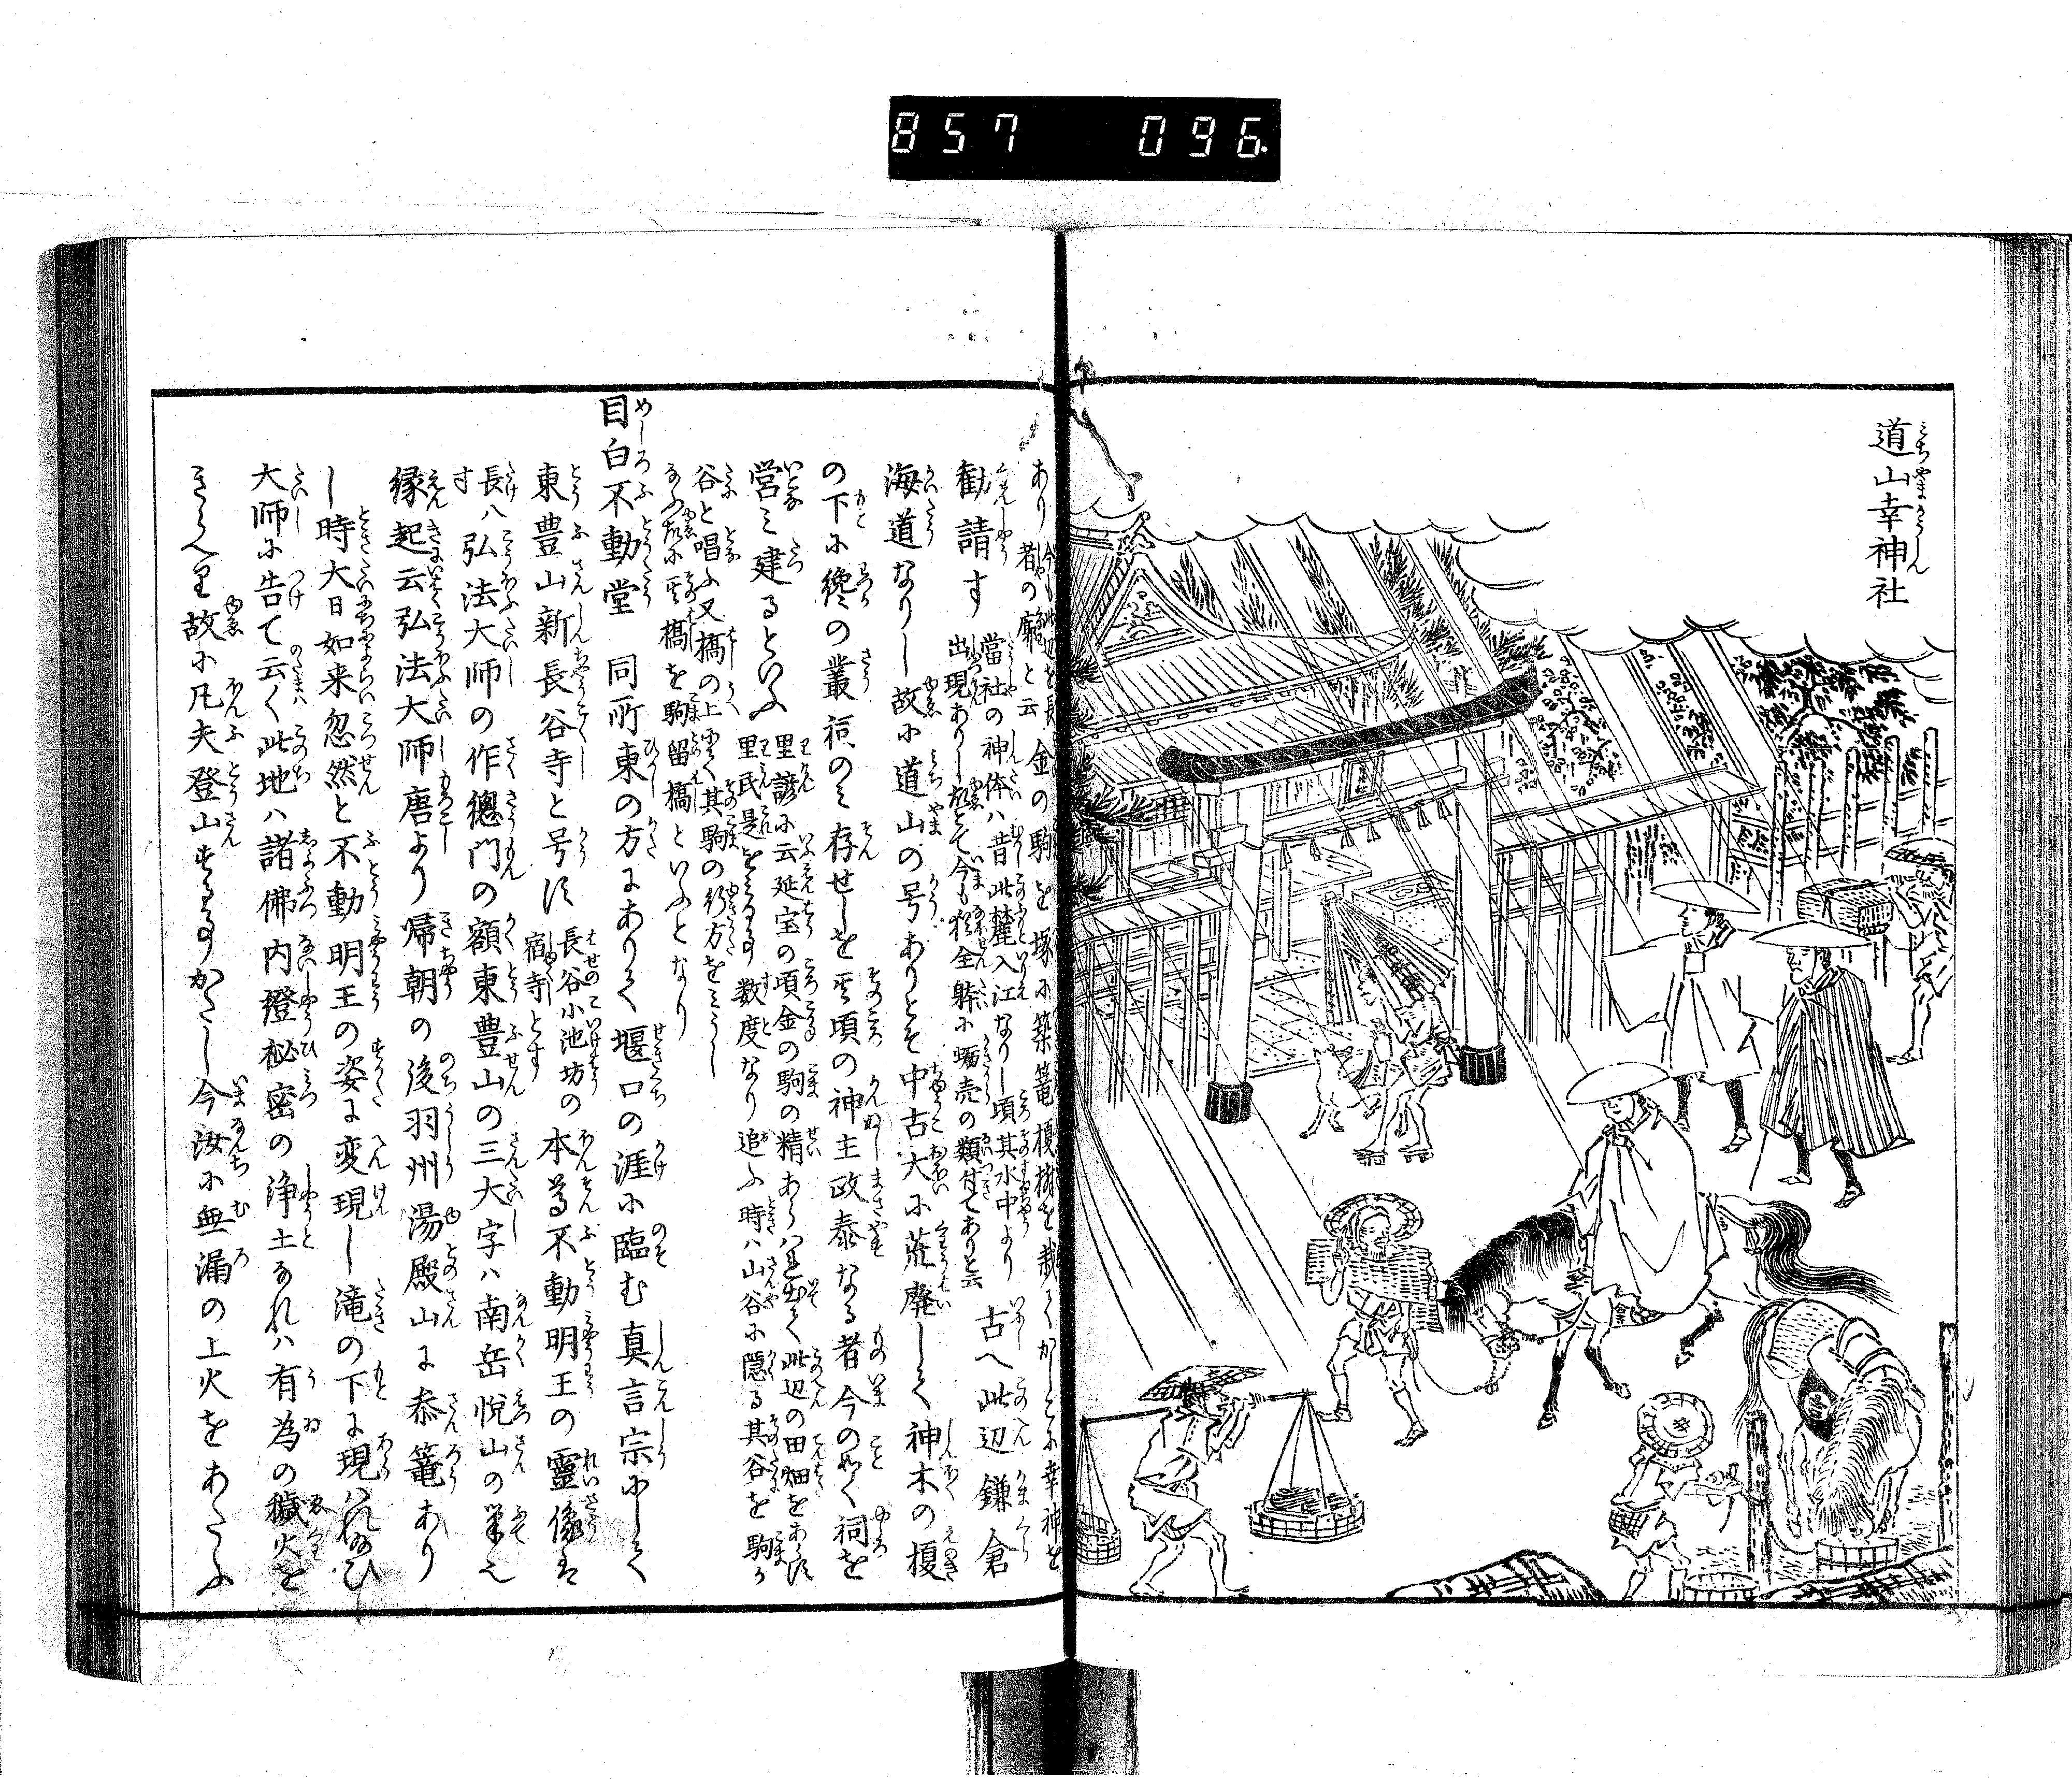 857 096
道山幸神社
あり 今も此辺を長者の廓と云 金の駒を塚に築篭榎樹を栽てかしこに幸神を
勧請す 當社の神体ハ昔此麓入江なりし頃其水中より出現ありし故とて今も猶全躰に蛎売の類付てありと云 古へ此辺鎌倉
海道なりし故に道山の号ありとそ中古大に荒廃して神木の榎
の下に纔の叢祠のミ存せしを其頃の神主政泰なる者今の如く祠を
営ミ建るといふ 里諺に云延宝の頃金の駒の精あらハれ出て此辺の田畑をあらす
里民是を 数度なり追ふ時ハ山谷に隠る其谷を駒か
谷と唱ふ又橋の上にて其駒の行方をミうし
なふ故に其橋を駒留橋といふとなり
目白不動堂 同所東の方にありて堰口の涯に臨む真言宗にして
東豊山新長谷寺と号す 長谷小池坊の宿寺とす 本尊不動明王の霊像は
長 す ハ弘法大師の作總門の額東豊山の三大字ハ南岳悦山の筆也
縁起云弘法大師唐より帰朝の後羽州湯殿山に参篭あり
し時大日如来忽然と不動明王の姿に変現し滝の下に現ハれ給ひ
大師に告て云く此地ハ諸佛内證秘密の浄土なれハ有為の穢火を
きらへり故に凡夫登山することかたし今汝に無漏の上火をあたふ